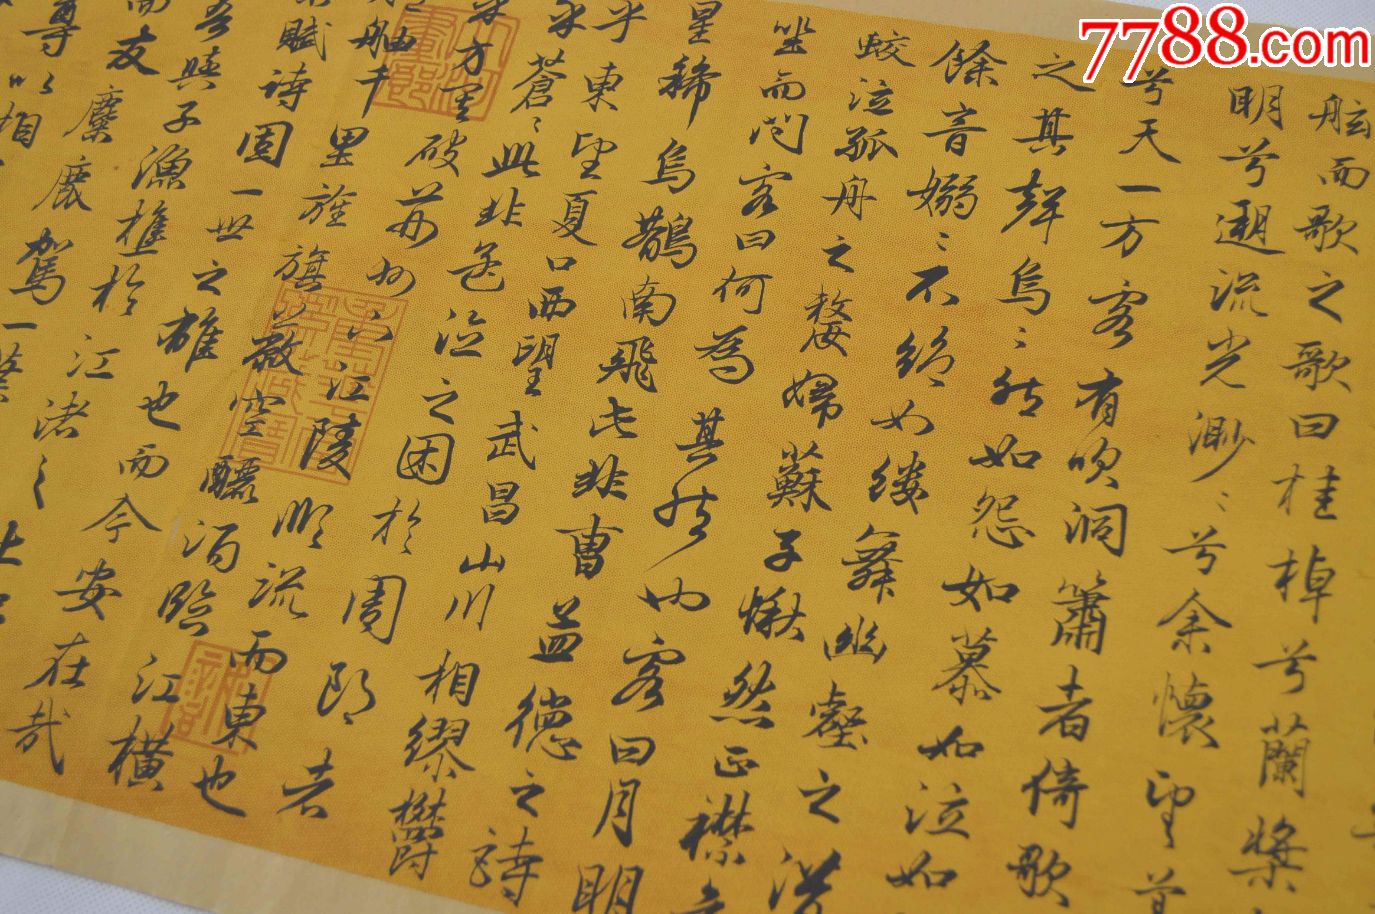 7788.com
舷而歌之歌曰桂棹兮蘭槳
明兮遡流光渺〻兮余懷望美
兮天一方客有吹洞簫者倚歌
之其聲烏〻然如怨如慕如泣如
餘音嫋〻不絕如縷舞幽壑之潛
蛟泣孤舟之嫠婦蘇子愀然正襟危
坐而問客曰何為其然也客曰月明
星稀烏鵲南飛此非曹孟德之詩
乎東望夏口西望武昌山川相繆鬱
乎蒼〻此非孟德之困於周郎者
乎方其破荊州下江陵順流而東也
舳千里旌旗蔽空釃酒臨江橫
賦詩固一世之雄也而今安在哉
吾與子漁樵於江渚之上
而友麋鹿駕一葉
尊以相